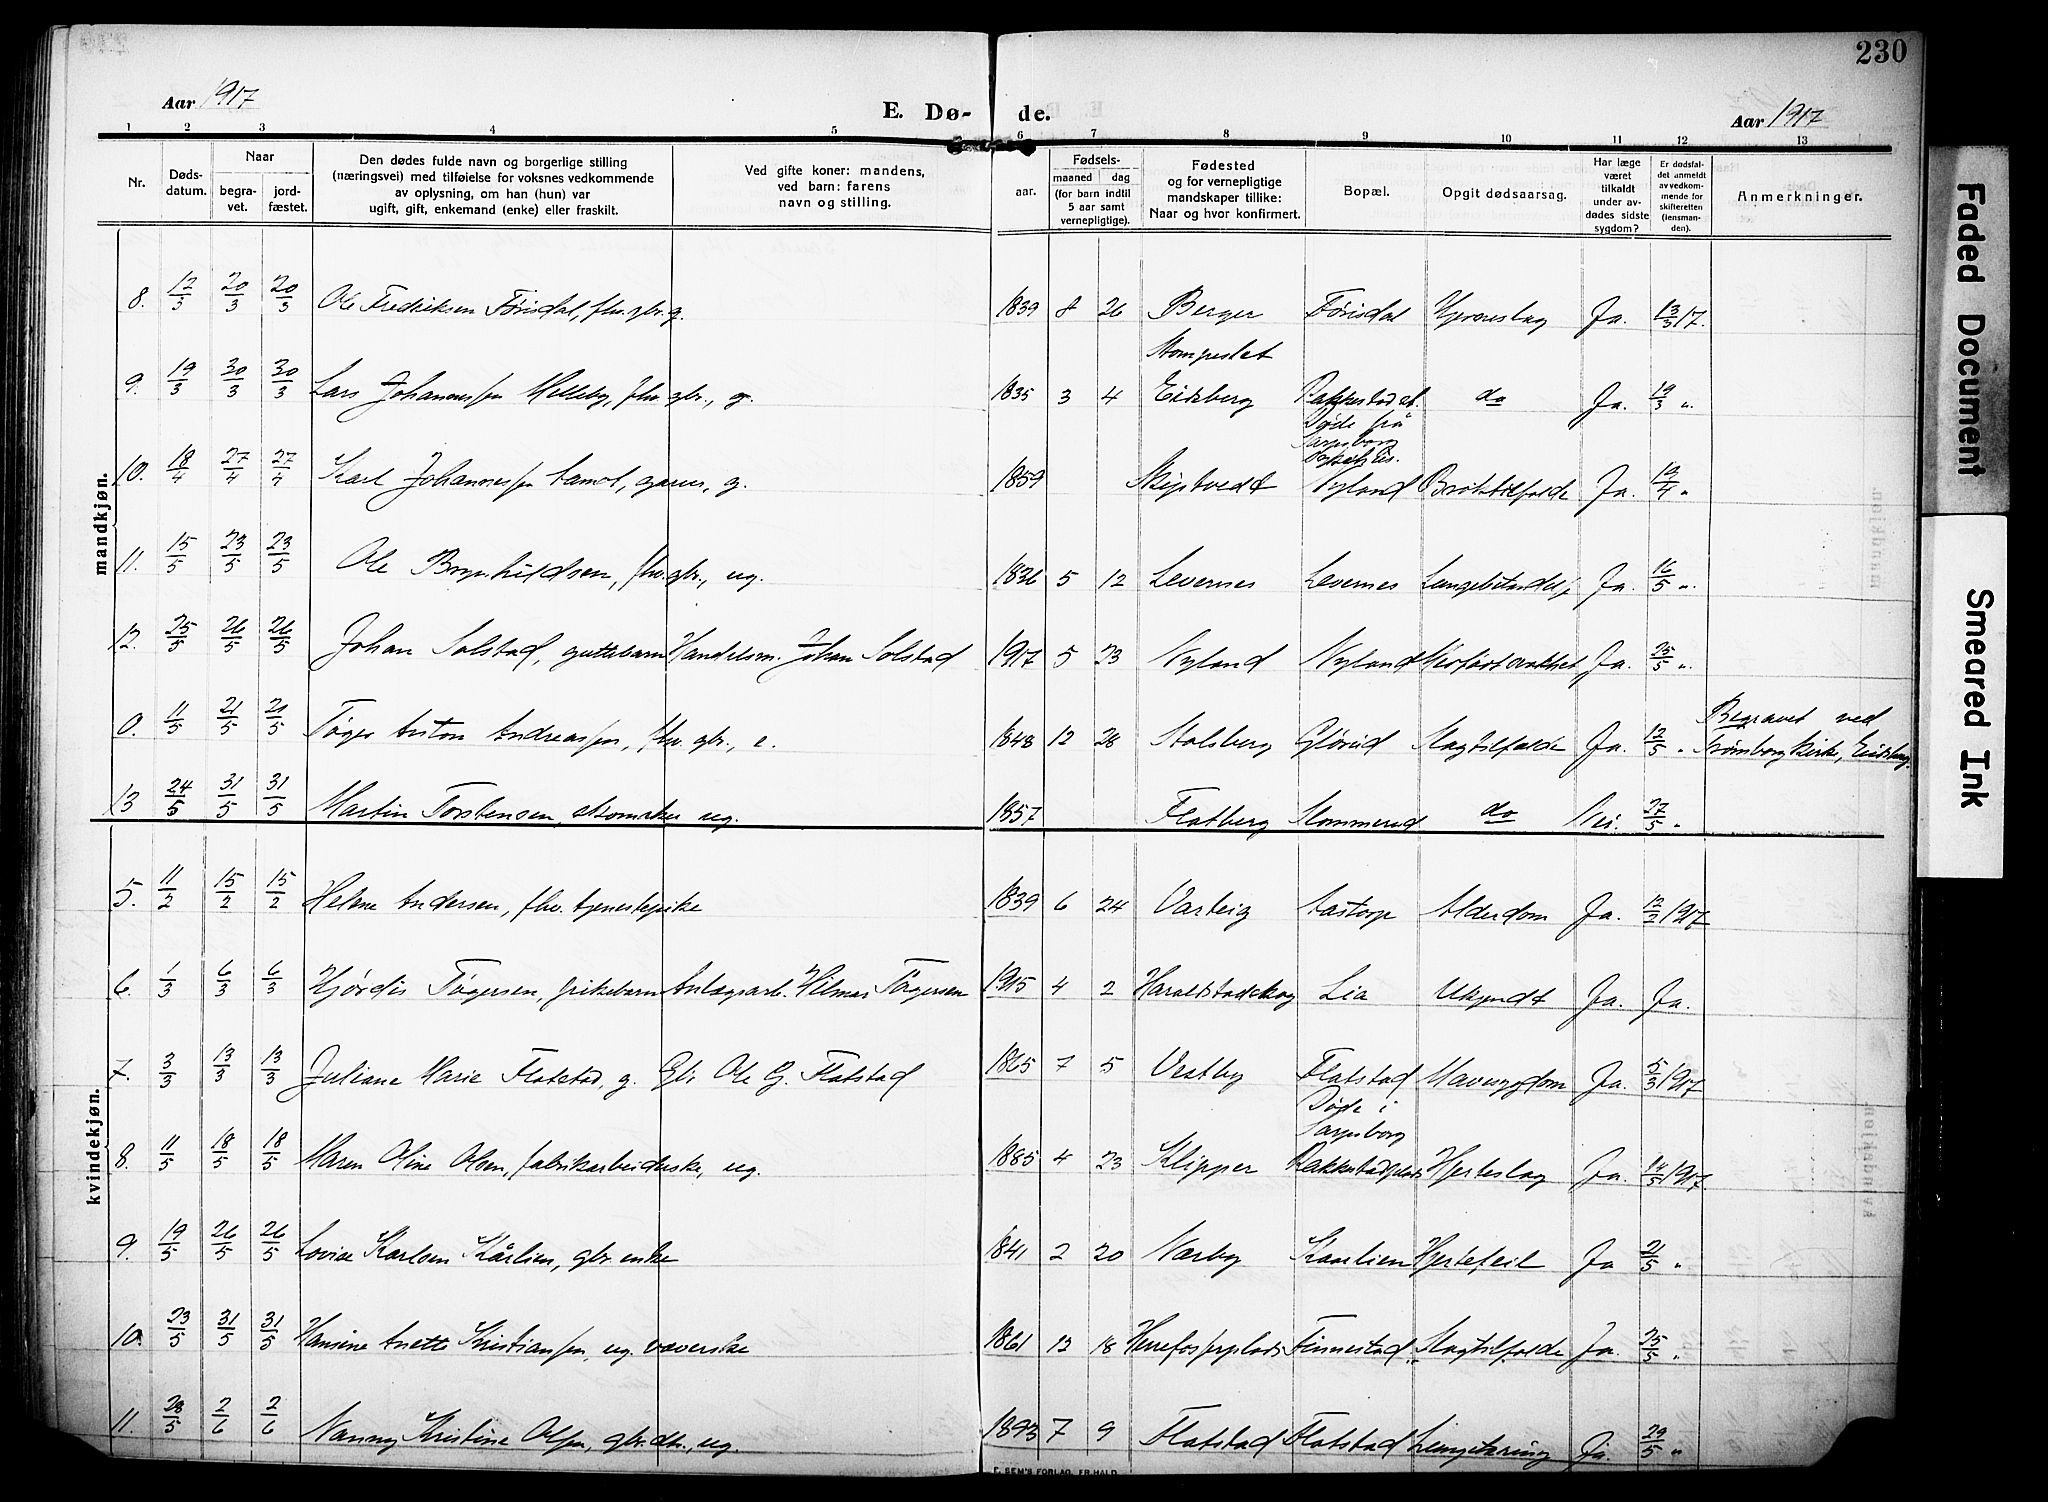 230
Aar 1917
E. Dø-
de.
Aar 1917
1 2 3 4 5 6 7 8 9 10 11 12 13
Nr.
Døds-
datum.
Naar
begra-
vet.
jord-
fæstet.
Den dødes fulde navn og borgerlige stilling
(næringsvei) med tilføielse for voksnes vedkommende
av oplysning, om han (hun) var
ugift, gift, enkemand (enke) eller fraskilt.
Ved gifte koner: mandens,
ved barn: farens
navn og stilling.
aar.
Fødsels-
maaned dag
(for barn indtil
5 aar samt
vernepligtige).
Fødested
og for vernepligtige
mandskaper tillike:
Naar og hvor konfirmert.
Bopæl.
Opgit dødsaarsag.
Har læge
været
tilkaldt
under av-
dødes sidste
sygdom?
Er dødsfal-
det anmeldt
av vedkom-
mende for
skifteretten
(lensman-
den).
Anmerkninger.
mandkjøn.
8. 12/3 20/3 20/3 Ole Fredriksen Tørisdal, fhv. gbr. g. 1839 8 26 Berger Tørisdal Ja. 13/3 17.
9. 19/3 30/3 30/3 Lars Johannessen Melleby, fhv. gbr., g. 1835 3 4 Eidsberg Rakkestad st. do Ja. 19/3 "
Døde på
Sarpsborg
10. 18/4 27/4 27/4 Karl Johannessen g. 1859 Skiptvedt Nyland Ja. 19/4 "
11. 15/5 23/5 23/5 Ole Brynhildsen, fhv. gbr., ug. 1836 5 12 Levernes Levernes Ja. 16/5 "
12. 25/5 26/5 26/5 Johan Solstad, guttebarn Handelsm. Johan Solstad 1917 5 23 Nyland Nyland Ja. 25/5 "
0. 11/5 21/5 21/5 Tøger Anton Andreassen, fhv. gbr., e. 1848 12 28 Stolsberg Glørud Slagtilfælde Ja. 12/5 " Begravet ved
Trømborg kirke, Eidsberg.
13 24/5 31/5 31/5 Martin Torstensen, skomaker ug. 1857 Flatberg Mommerud do Nei. 27/5 "
kvindekjøn.
5. 11/2 15/2 15/2 Helene Andersen, fhv. tjenestepike 1839 6 24 Varteig Aastorp Alderdom Ja. 12/2 1917
6. 1/3 6/3 6/3 Hjørdis Tøgersen, pikebarn Anlægsarb. Hilmar Tøgersen 1915 4 2 Haraldstadskog Lia Ukjendt Ja. Ja.
7. 3/3 13/3 13/3 Juliane Marie Flatstad, g. Gbr. Ole G. Flatstad 1865 7 5 Vestby Flatstad Mavesygdom Ja. 5/3 1917
Døde i
Sarpsborg
8. 11/5 18/5 18/5 Maren Oline Olsen, fabrikarbeiderske, ug. 1885 4 23 Klipper Hjerteslag Ja. 14/5 1917.
9. 19/5 26/5 26/5 Lovise Karlsen Kårlien, gbr. enke 1841 2 20 Nærby Kaarlien Hjertefeil Ja 21/5 "
10. 23/5 31/5 31/5 Hansine Anette Kristiansen, ug. væverske 1861 12 18 Finnestad Slagtilfælde Ja. 25/5 "
11. 28/5 2/6 2/6 Nanny Kristine Olsen, gbr. dtr., ug. 1893 7 9 Flatstad Flatstad Lungetæring Ja. 29/5 "
E. SEM'S FORLAG, FR.HALD
Faded Document
Smeared Ink